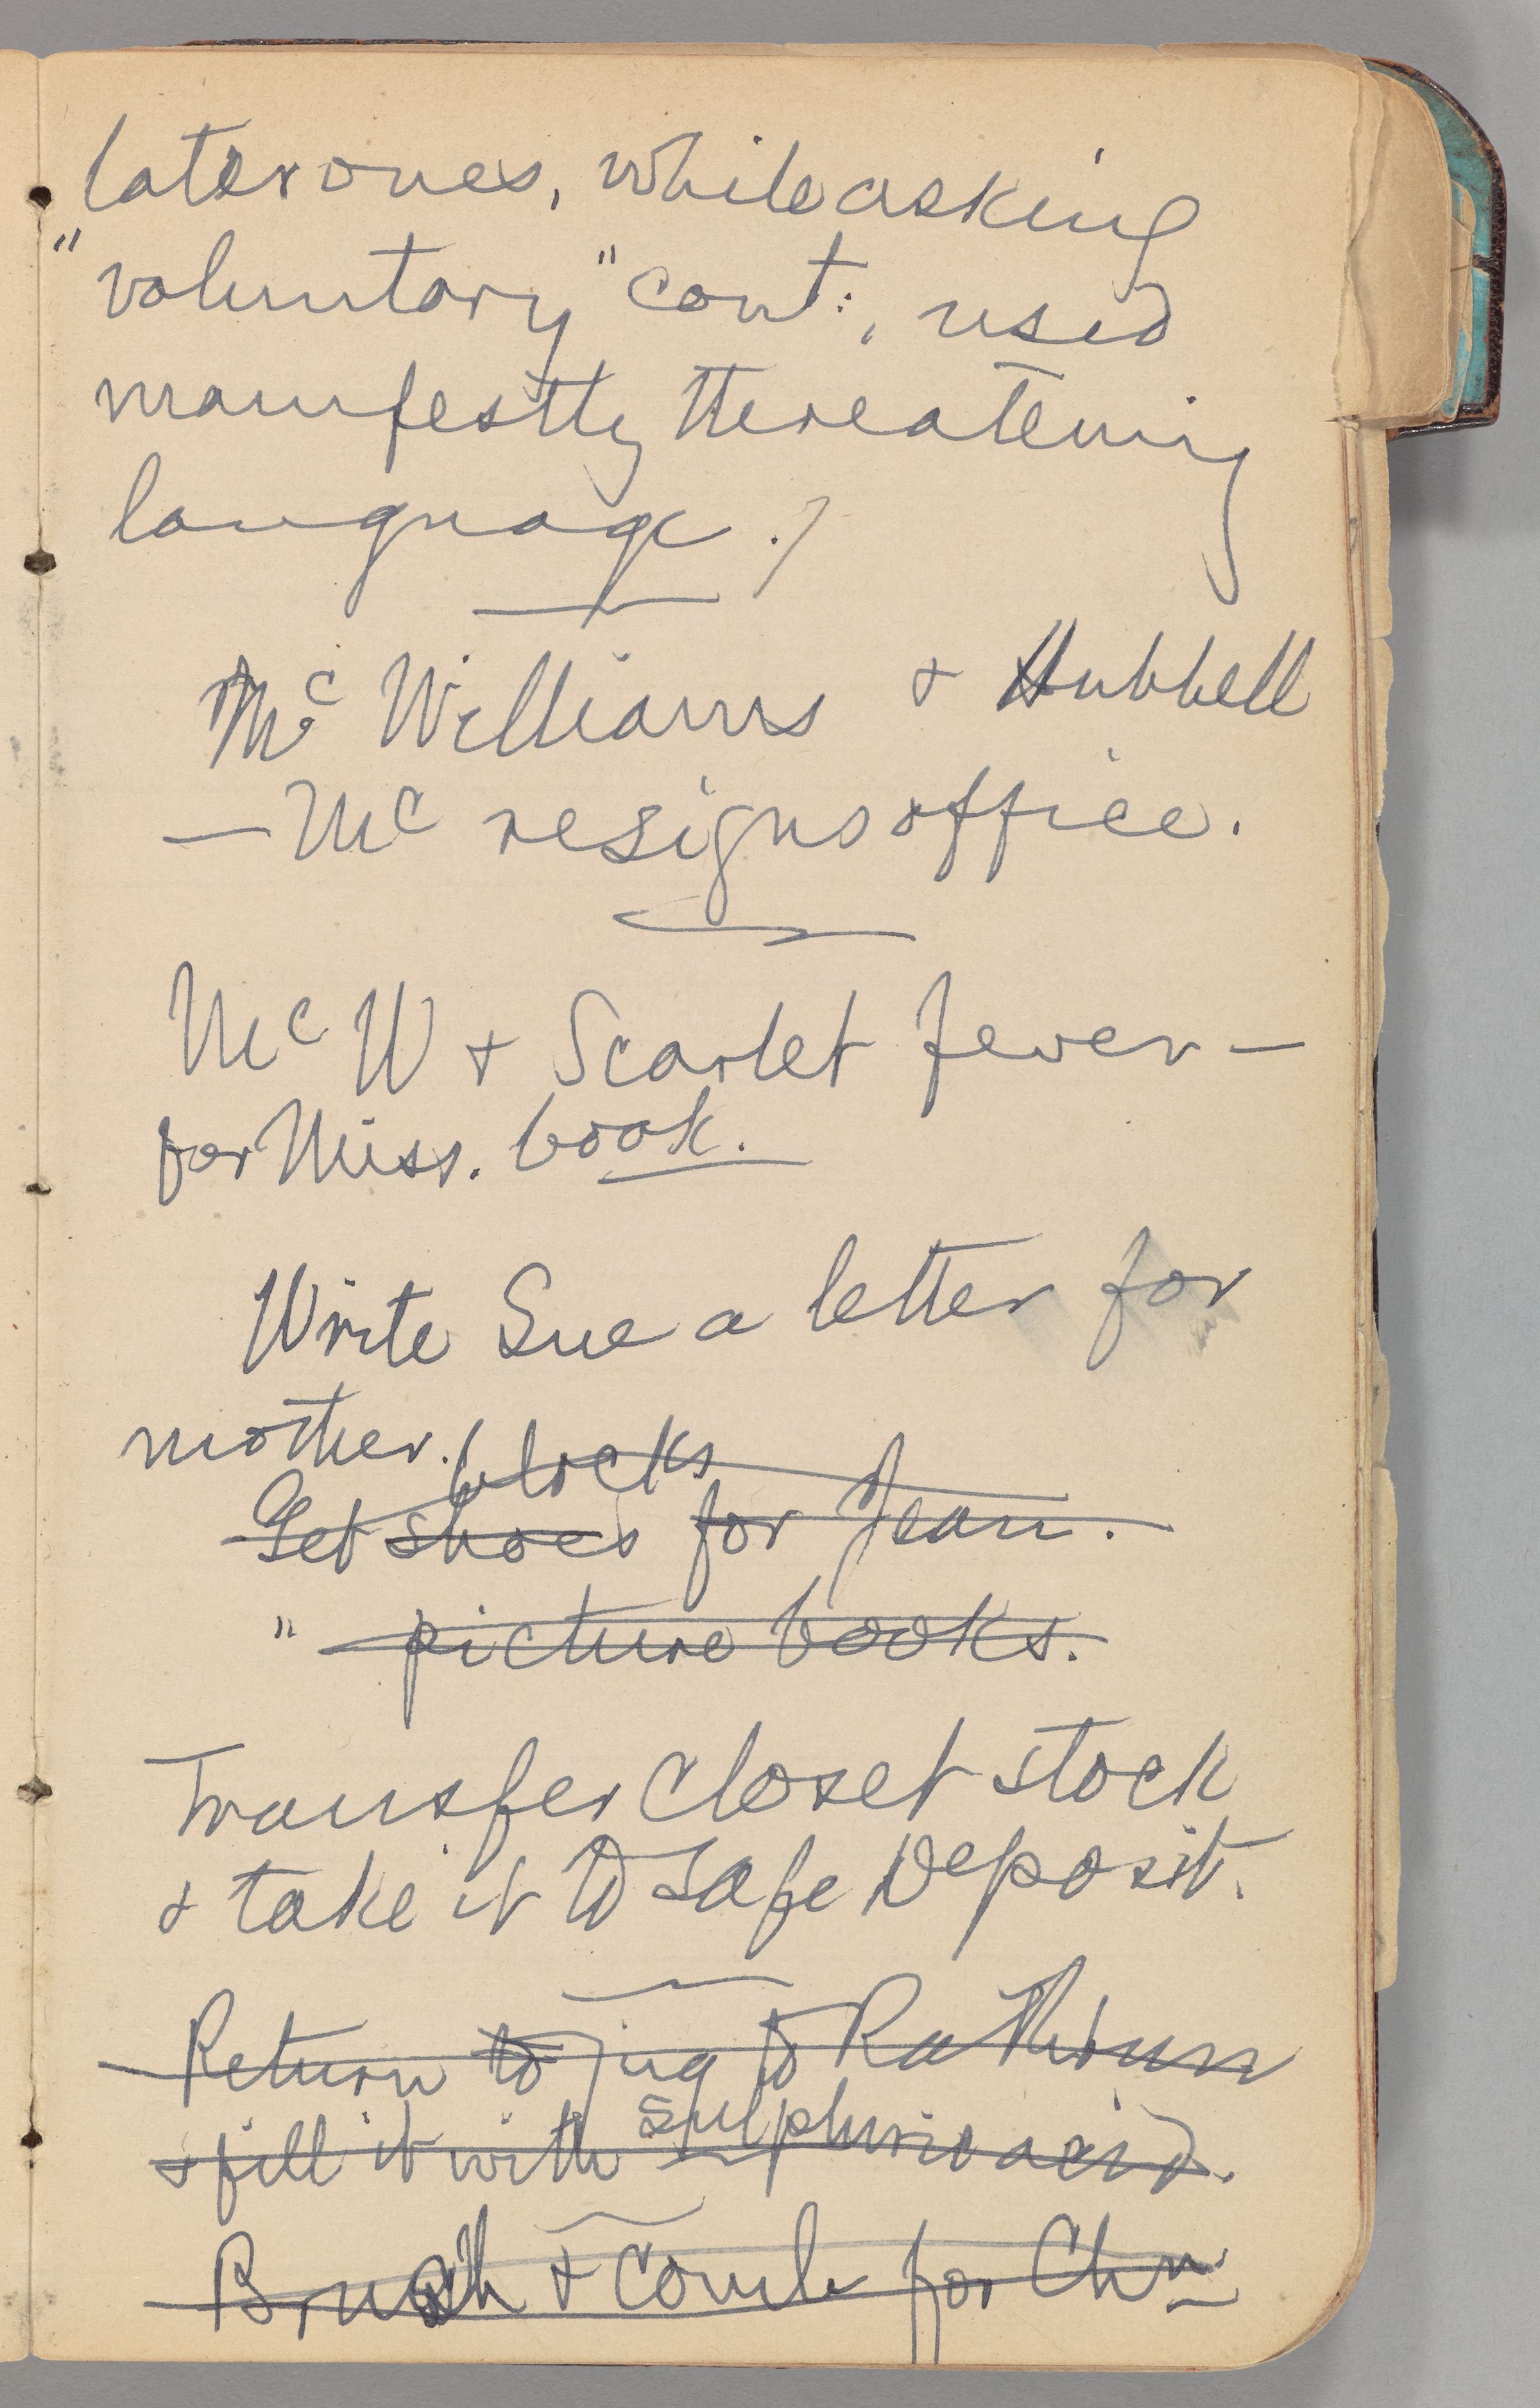 later ones, while asking
"voluntary" cont:, used
manifestly threatening
language.)
McWilliams & Hubbell
— Mc resigns office.
McW & Scarlet fever —
for Miss. book.
Write Sue a letter for
mother.
blocks
Get shoes for Jean.
" picture books.
Transfer Closet stock
& take it to Safe Deposit.
Return to jug to Rathbun
& fill it with sulphuric acid.
Brush & Comb for Chn